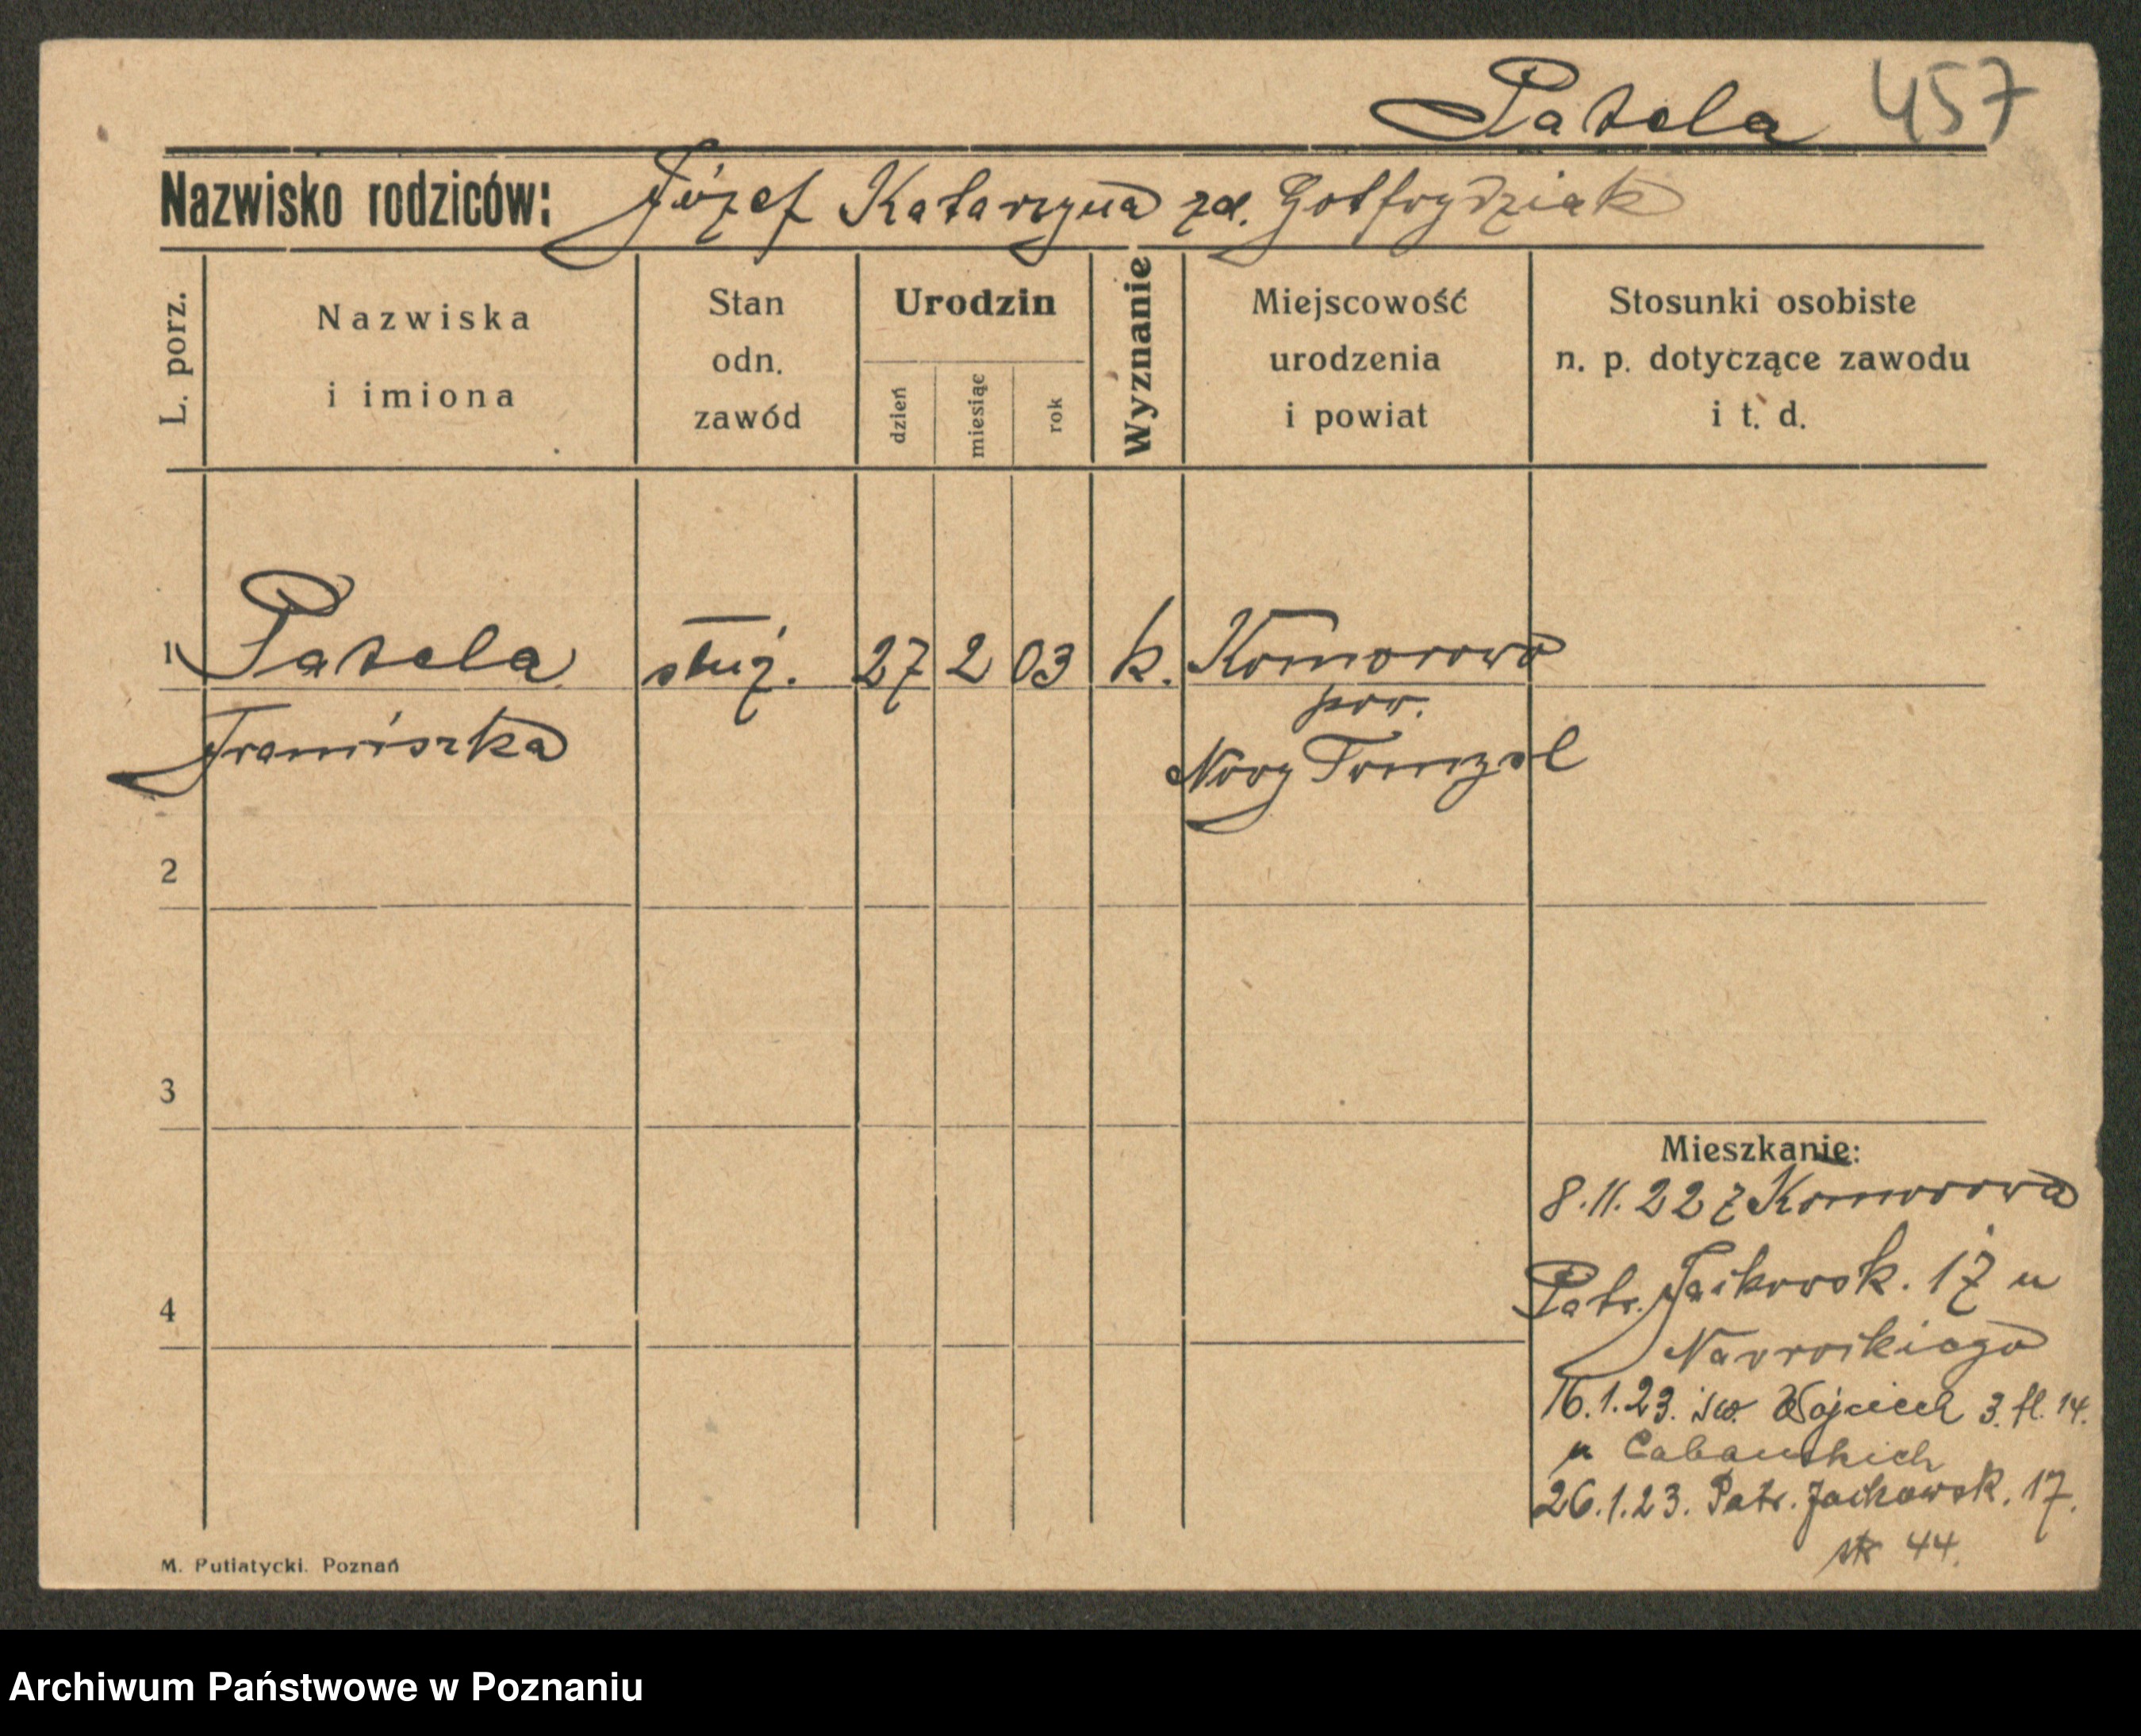 Patela 457
Nazwisko rodziców: Józef Katarzyna zd. Gotfrydziak
L. porz.
Nazwiska
i imiona
Stan
odn.
zawód
Urodzin
dzień
miesiąc
rok
Wyznanie
Miejscowość
urodzenia
i powiat
Stosunki osobiste
n. p. dotyczące zawodu
i t. d.
1 Patela służ. 27 2 03 k. Komorowo
pow.
Franciszka Nowy Tomyśl
2
3
Mieszkanie:
8.11.22 z Komorowa
4
Patr. Jackowsk. 17 u
Nawrockiego
16.1.23. św. Wojciech 3. fl. 14.
u Cabańskich
26.1.23. Patr. Jackowsk. 17.
str 44.
M. Putiatycki. Poznań
Archiwum Państwowe w Poznaniu